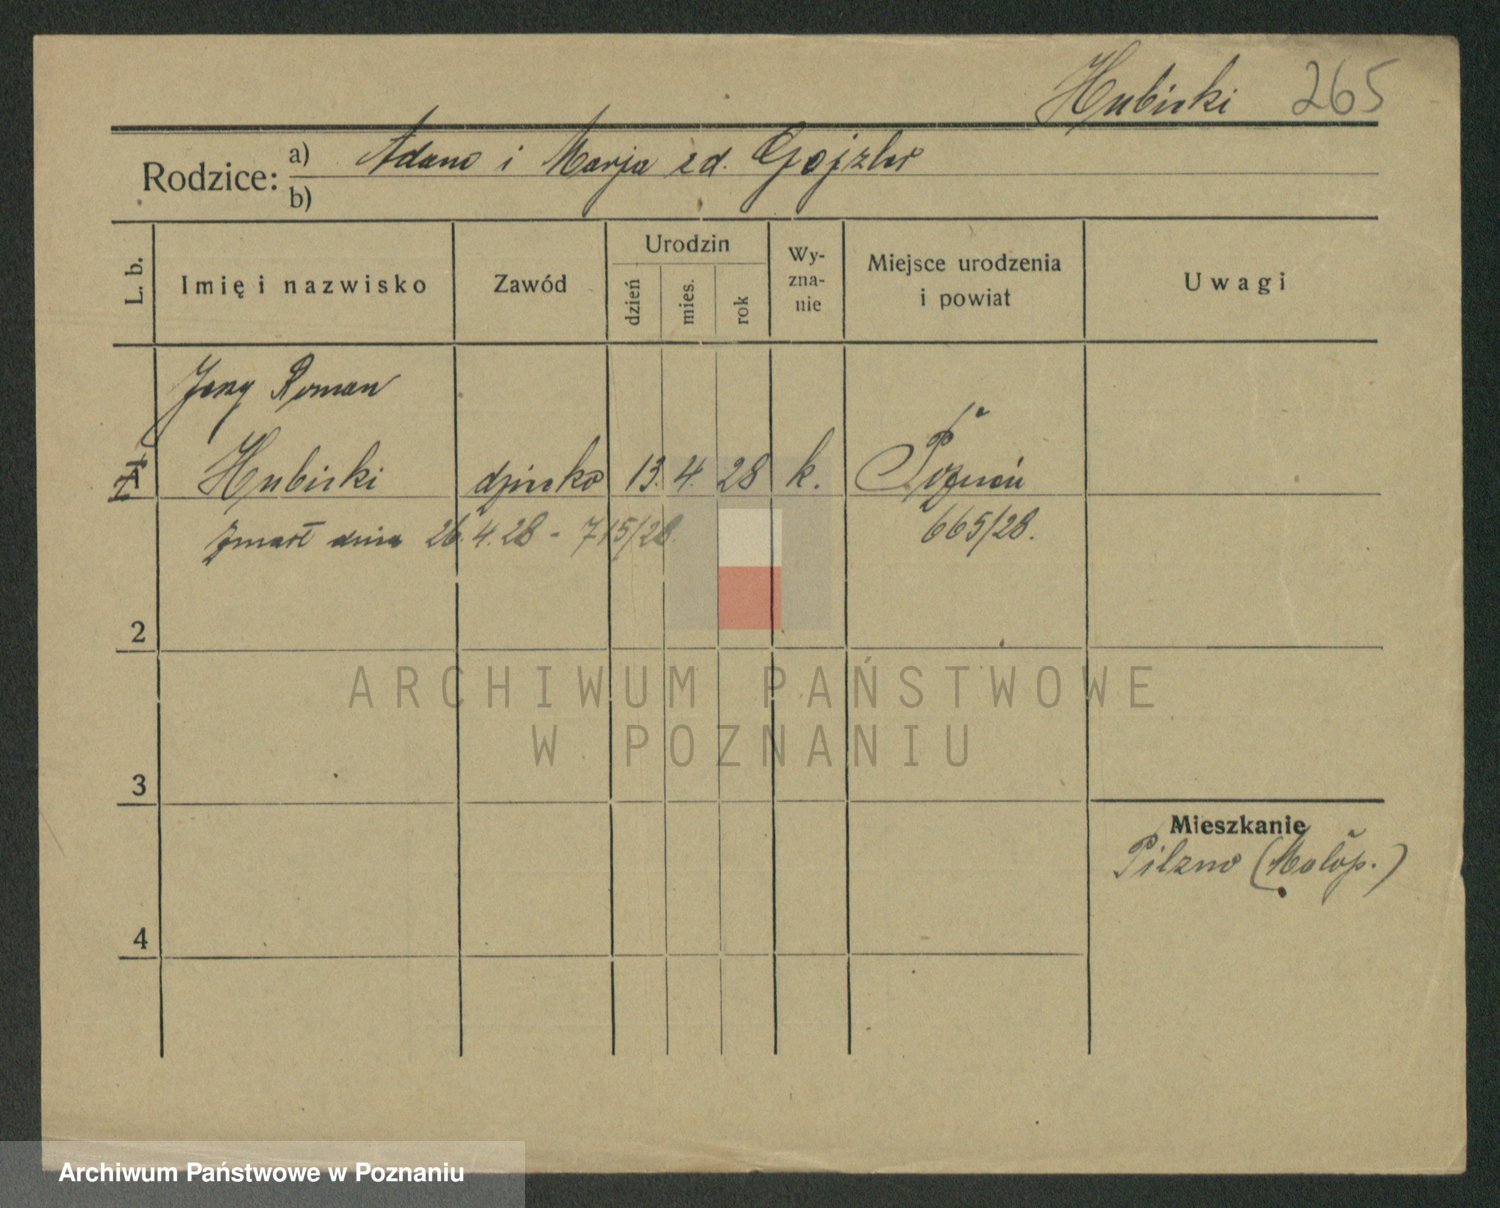 Hubicki 265
Rodzice: a) Adam i Marja zd. Gojzler
b)
L. b. Imię i nazwisko Zawód Urodzin dzień mies. rok Wyznanie Miejsce urodzenia i powiat Uwagi
Jerzy Roman
Hubicki dziecko 13. 4. 28 k. Poznań
zmarł dnia 26.4.28 - 715/28. 665/28.
2
3
Mieszkanie
Pilzno (Małop.)
4
ARCHIWUM PAŃSTWOWE
W POZNANIU
Archiwum Państwowe w Poznaniu